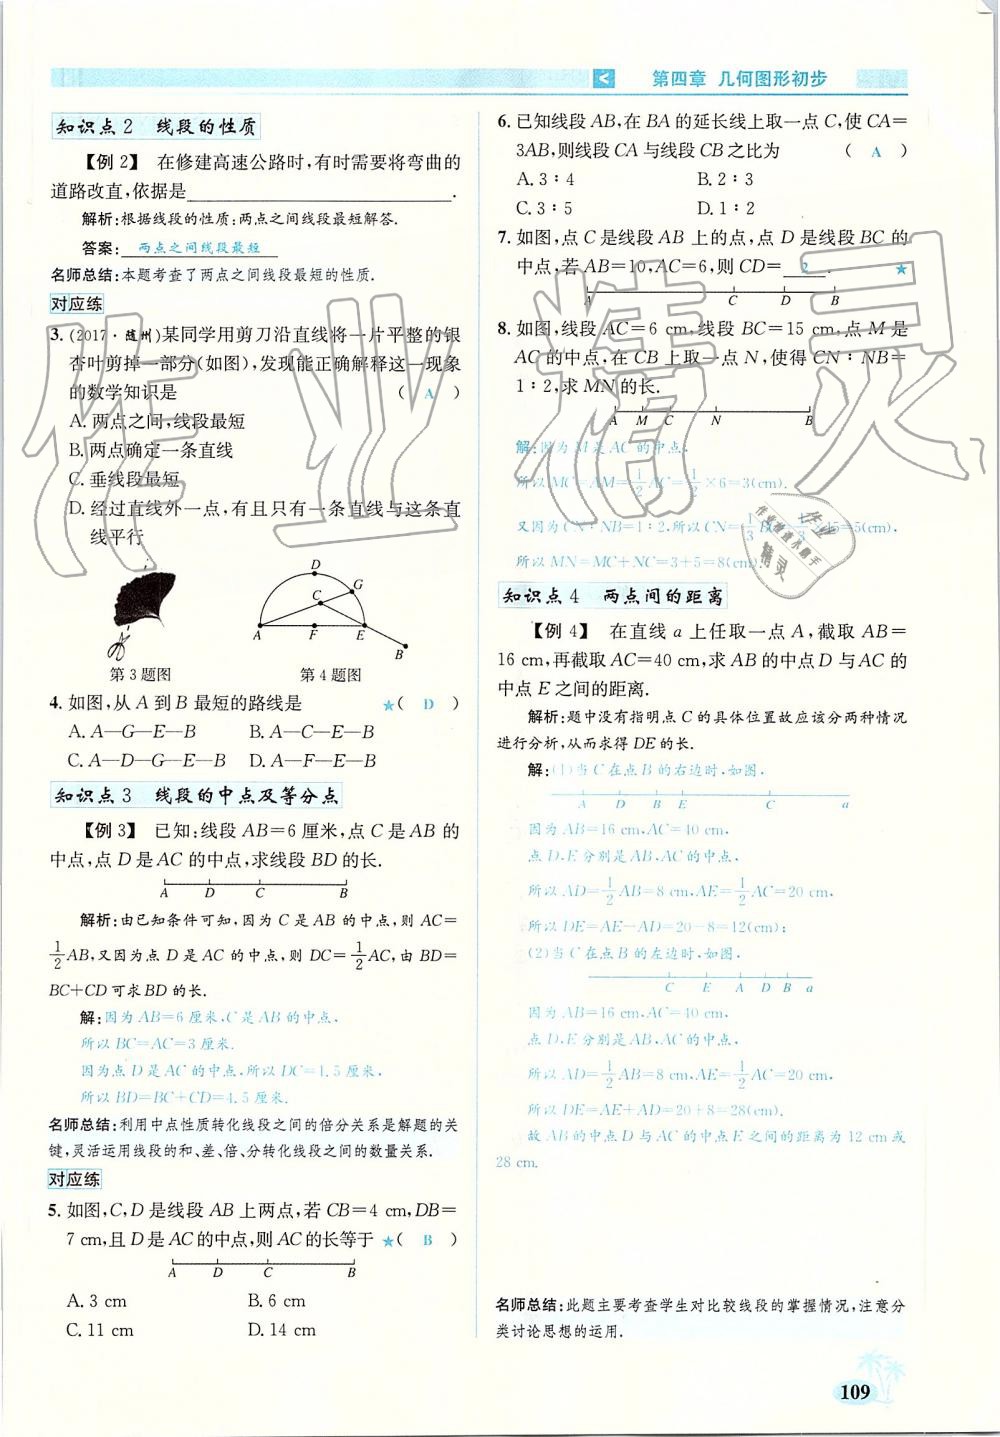 < 第四章 几何图形初步
知识点2 线段的性质
【例2】 在修建高速公路时,有时需要将弯曲的
道路改直,依据是____.
解析:根据线段的性质:两点之间线段最短解答.
答案: 两点之间线段最短
名师总结:本题考查了两点之间线段最短的性质.
对应练
3.(2017·随州)某同学用剪刀沿直线将一片平整的银
杏叶剪掉一部分(如图),发现能正确解释这一现象
的数学知识是 ( A )
A.两点之间,线段最短
B.两点确定一条直线
C.垂线段最短
D.经过直线外一点,有且只有一条直线与这条直
线平行
D
C G
A F E
B
第3题图 第4题图
4.如图,从A到B最短的路线是 ★( D )
A.A—G—E—B B.A—C—E—B
C.A—D—G—E—B D.A—F—E—B
知识点3 线段的中点及等分点
【例3】 已知:线段AB=6厘米,点C是AB的
中点,点D是AC的中点,求线段BD的长.
A D C B
解析:由已知条件可知,因为C是AB的中点,则AC=
1/2AB,又因为点D是AC的中点,则DC=1/2AC,由BD=
BC+CD可求BD的长.
解:因为AB=6厘米,C是AB的中点,
所以BC=AC=3厘米.
因为点D是AC的中点,所以DC=1.5厘米,
所以BD=BC+CD=4.5厘米.
名师总结:利用中点性质转化线段之间的倍分关系是解题的关
键,灵活运用线段的和、差、倍、分转化线段之间的数量关系.
对应练
5.如图,C,D是线段AB上两点,若CB=4 cm,DB=
7 cm,且D是AC的中点,则AC的长等于 ★( B )
A D C B
A.3 cm B.6 cm
C.11 cm D.14 cm
6.已知线段AB,在BA的延长线上取一点C,使CA=
3AB,则线段CA与线段CB之比为 ( A )
A.3∶4 B.2∶3
C.3∶5 D.1∶2
7.如图,点C是线段AB上的点,点D是线段BC的
中点,若AB=10,AC=6,则CD= 2 . ★
A C D B
8.如图,线段AC=6 cm,线段BC=15 cm,点M是
AC的中点,在CB上取一点N,使得CN∶NB=
1∶2,求MN的长.
A M C N B
解:因为M是AC的中点,
所以MC=AM=1/2AC=1/2×6=3(cm).
又因为CN∶NB=1∶2,所以CN=1/3BC=1/3×15=5(cm),
所以MN=MC+NC=3+5=8(cm).
知识点4 两点间的距离
【例4】 在直线a上任取一点A,截取AB=
16 cm,再截取AC=40 cm,求AB的中点D与AC的
中点E之间的距离.
解析:题中没有指明点C的具体位置故应该分两种情况
进行分析,从而求得DE的长.
解:(1)当C在点B的右边时,如图,
A D B E C a
因为AB=16 cm,AC=40 cm,
点D,E分别是AB,AC的中点,
所以AD=1/2AB=8 cm,AE=1/2AC=20 cm,
所以DE=AE-AD=20-8=12(cm);
(2)当C在点B的左边时,如图,
C E A D B a
因为AB=16 cm,AC=40 cm,
点D,E分别是AB,AC的中点,
所以AD=1/2AB=8 cm,AE=1/2AC=20 cm,
所以DE=AE+AD=20+8=28(cm).
故AB的中点D与AC的中点E之间的距离为12 cm或
28 cm.
名师总结:此题主要考查学生对比较线段的掌握情况,注意分
类讨论思想的运用.
109
作业精灵